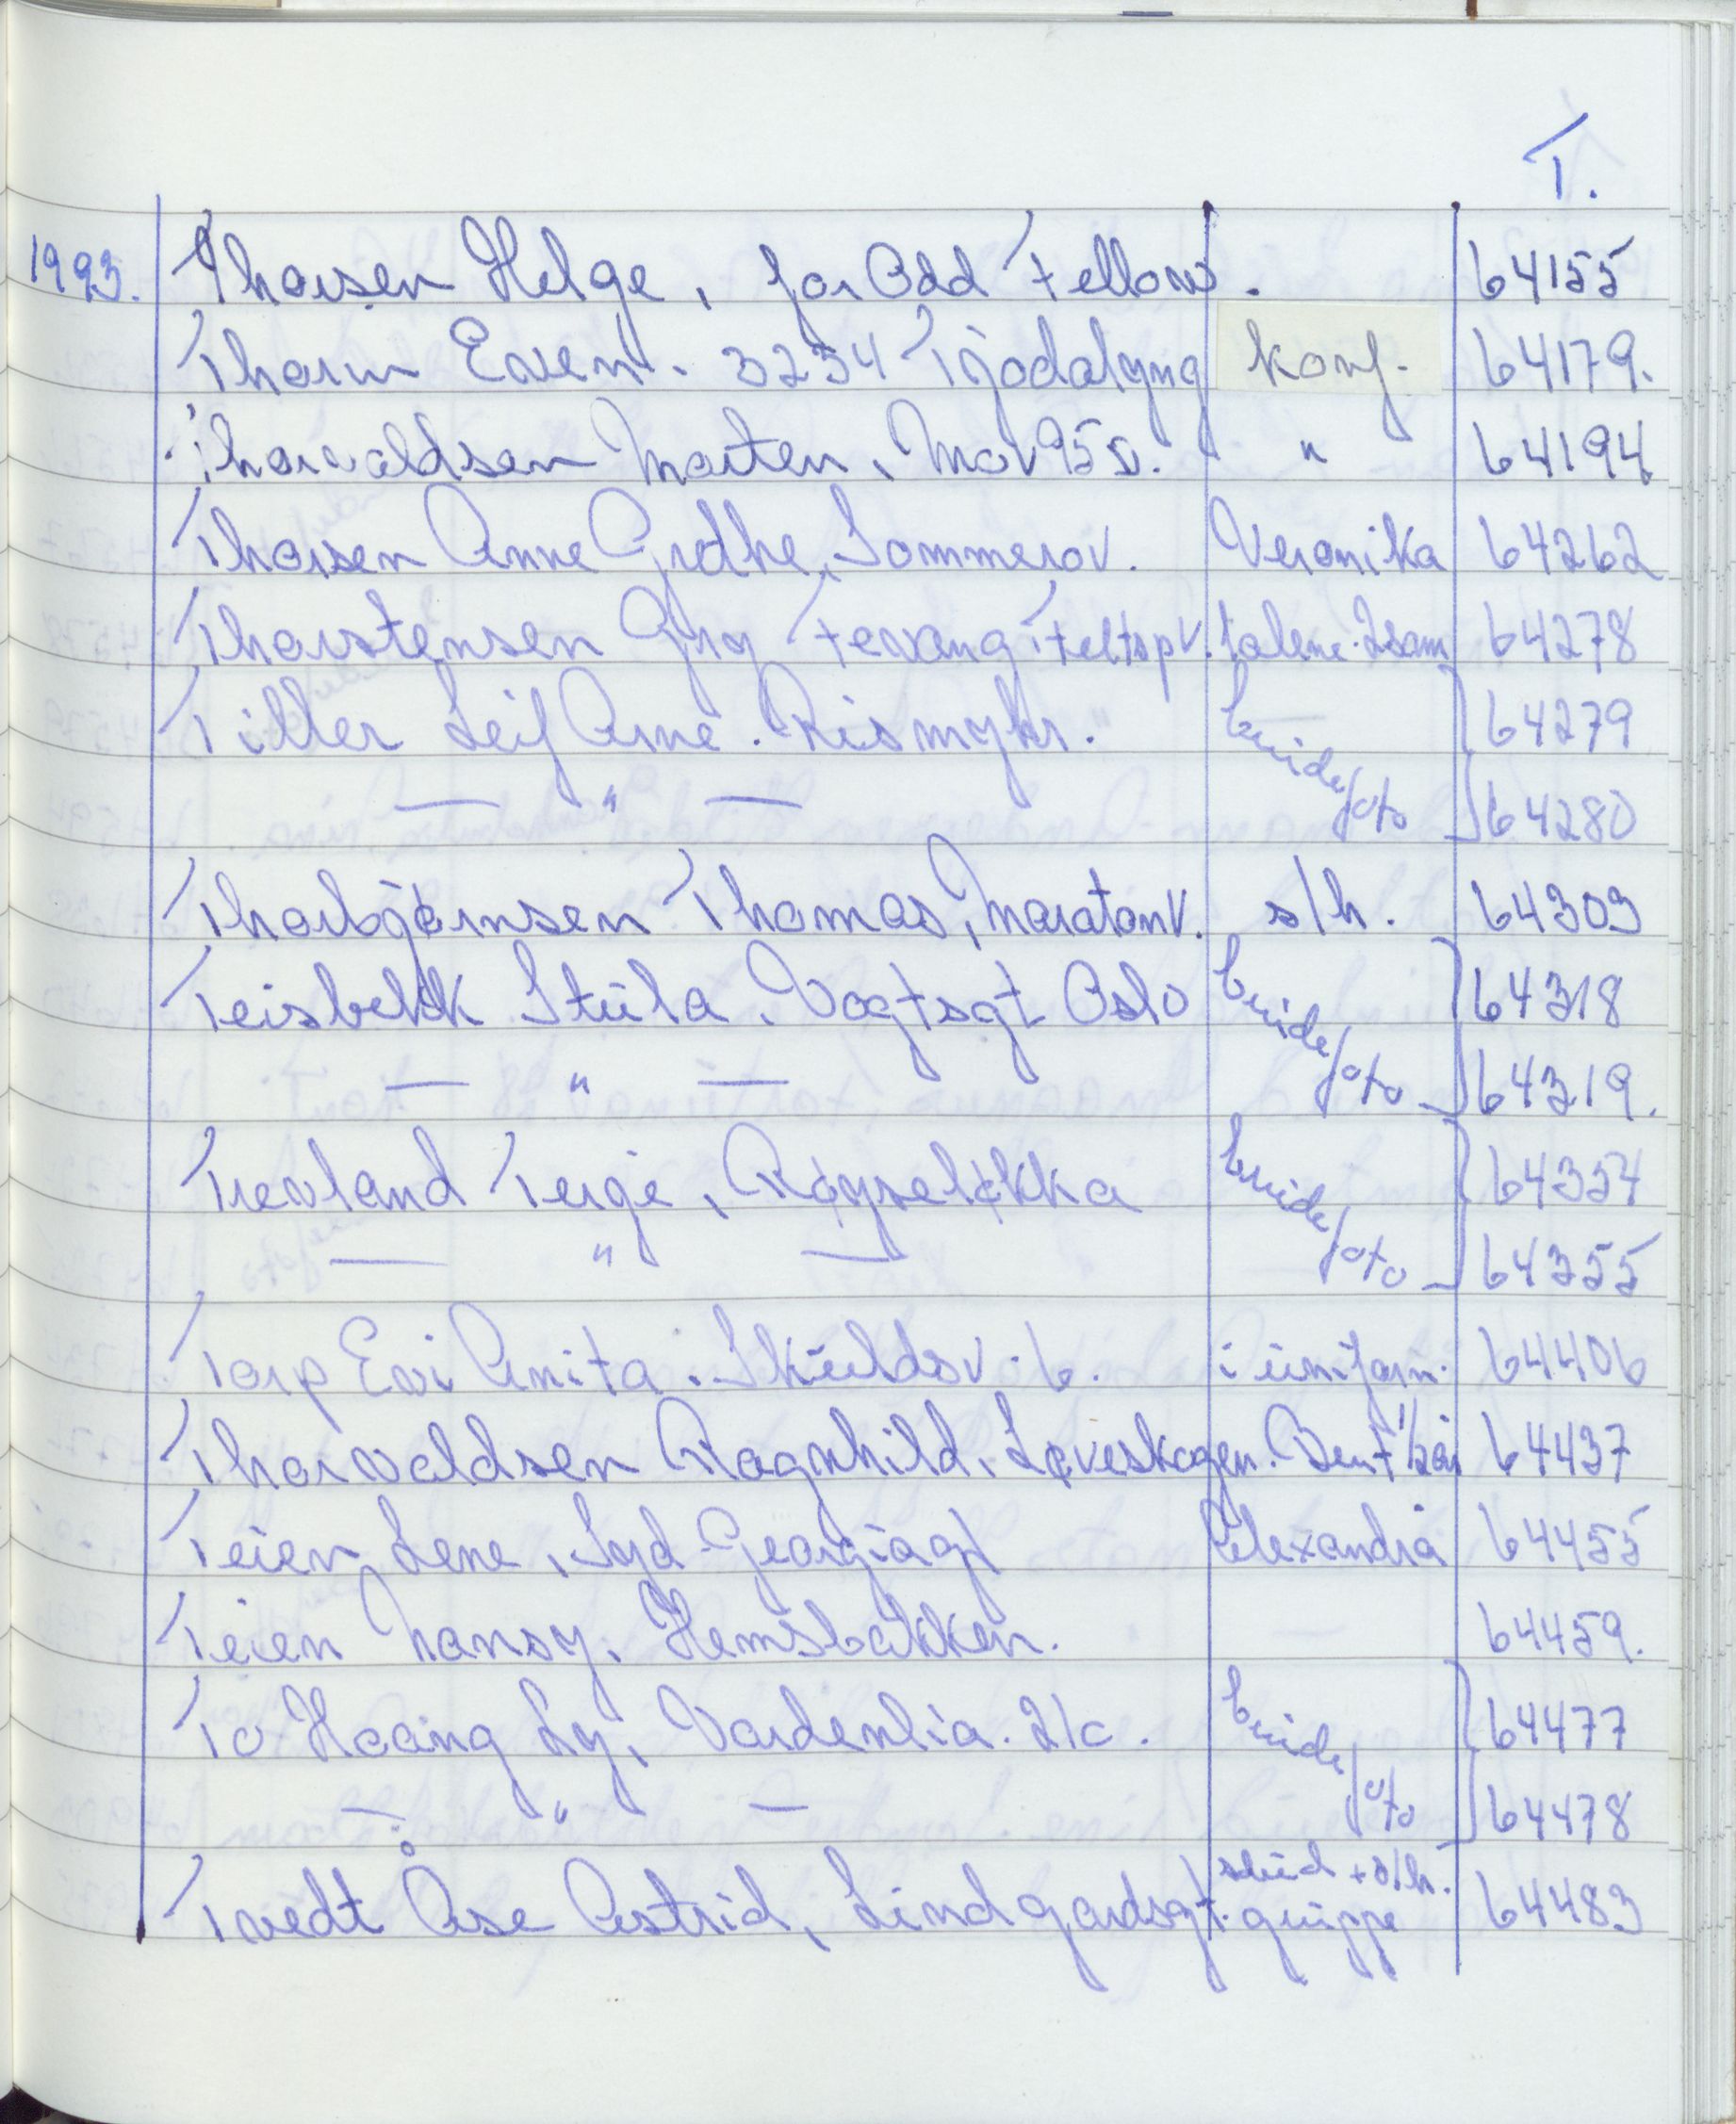 T.
1993. Thorsen Helge, for Odd Fellow. 64155
Thorin Even. 3234 Tjodalyng konf. 64179.
Thorvaldsen Morten, Mov 95 D. " 64194
Thorsen Anne Grethe, Sommerov. Veronika 64262
Thorstensen Gry Fevang Feltspv. alene. 2sam 64278
Tiller Leif Arne. Rismyhr. brude 64279
— " — foto 64280
Thorbjørnsen Thomas, Maratonv. s/h. 64303
Teisbekk Stula. Vogtsgt Oslo brude 64318
— " — foto 64319.
Trevland Terje, Røyseløkka brude 64354
— " — foto 64355
Torp Evi Anita. Skuldsv. 6. i uniform. 64406
Thorvaldsen Ragnhild. Løveskogen. Bent 1/2 år 64437
Teien Lene, Syd Georgiagt Alexandra 64455
Teien Nansy, Hemsbakken. — 64459.
To Hoang Ly, Vardenlia. 21c. brude 64477
— " — foto 64478
Tvedt Åse Astrid, Lindgardsgt. stud + s/h. gruppe 64483